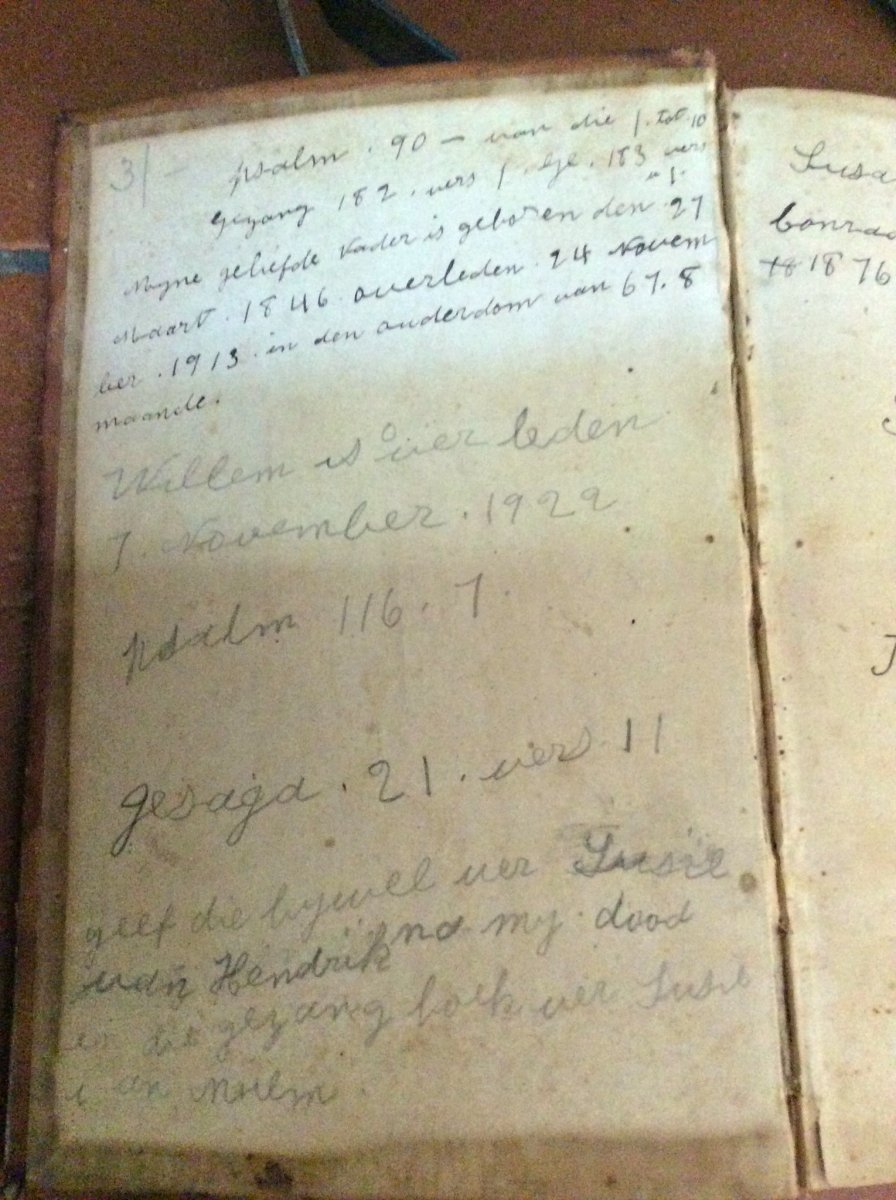 31 -
psalm . 90 - van die 1 . tot 10
gezang 182 . vers 1 . ge . 183 vers
" 1 .
Myne geliefde vader is geboren den 27
Maart . 1846 . overleden . 24 Novem
ber . 1913 . in den ouderdom van 67 . 8
maande .
Willem is over leden
7 . November . 1922
psalm 116 . 7 .
gesaga . 21 . vers . 11
geef die bywel ver Susie
van Hendrik na my dood
en die gezang boek ver Susie
van
Susa
Conrad
18 1876